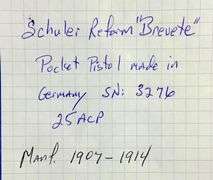 Schuler Reform "Brevete"
Pocket Pistol made in
Germany SN: 3276
25 ACP
Manf. 1907-1914